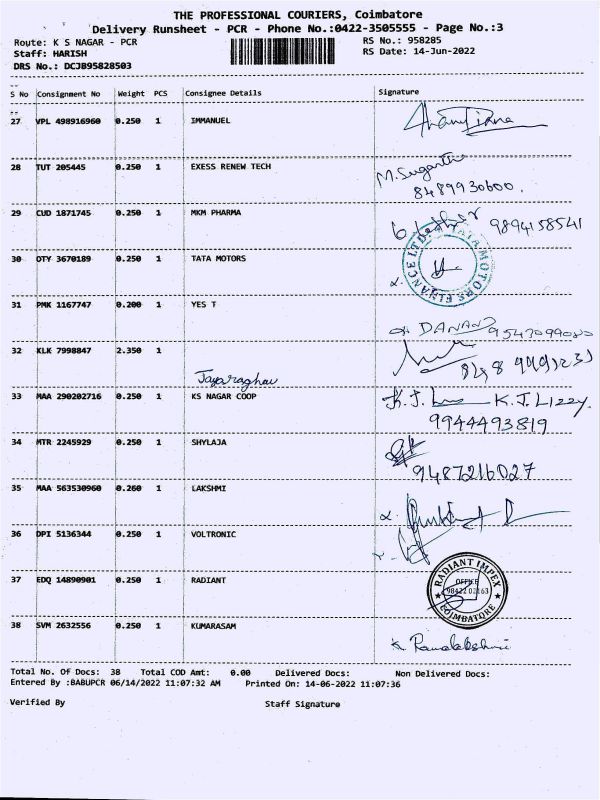 THE PROFESSIONAL COURIERS, Coimbatore
Delivery Runsheet - PCR - Phone No.:0422-3505555 - Page No.:3
Route: K S NAGAR - PCR RS No.: 958285
Staff: HARISH RS Date: 14-Jun-2022
DRS No.: DCJB95828503
S No Consignment No Weight PCS Consignee Details Signature
27 VPL 498916960 0.250 1 IMMANUEL
28 TUT 205445 0.250 1 EXESS RENEW TECH
M. Suganthi
8489930600.
29 CUD 1871745 0.250 1 MKM PHARMA
9894158541
30 OTY 3670189 0.250 1 TATA MOTORS
TATA MOTORS FINANCE LTD
31 PMK 1167747 0.200 1 YES T
DANAND
32 KLK 7998847 2.350 1
Jayaraghav
33 MAA 290202716 0.250 1 KS NAGAR COOP
K.J. K.J. LIZZY.
9944493819
34 MTR 2245929 0.250 1 SHYLAJA
9487216027
35 MAA 563530960 0.260 1 LAKSHMI
36 DPI 5136344 0.250 1 VOLTRONIC
37 EDQ 14890901 0.250 1 RADIANT
RADIANT IMPEX
OFFICE
COIMBATORE
38 SVM 2632556 0.250 1 KUMARASAM
K Ramalakshmi
Total No. Of Docs: 38 Total COD Amt: 0.00 Delivered Docs: Non Delivered Docs:
Entered By :BABUPCR 06/14/2022 11:07:32 AM Printed On: 14-06-2022 11:07:36
Verified By Staff Signature